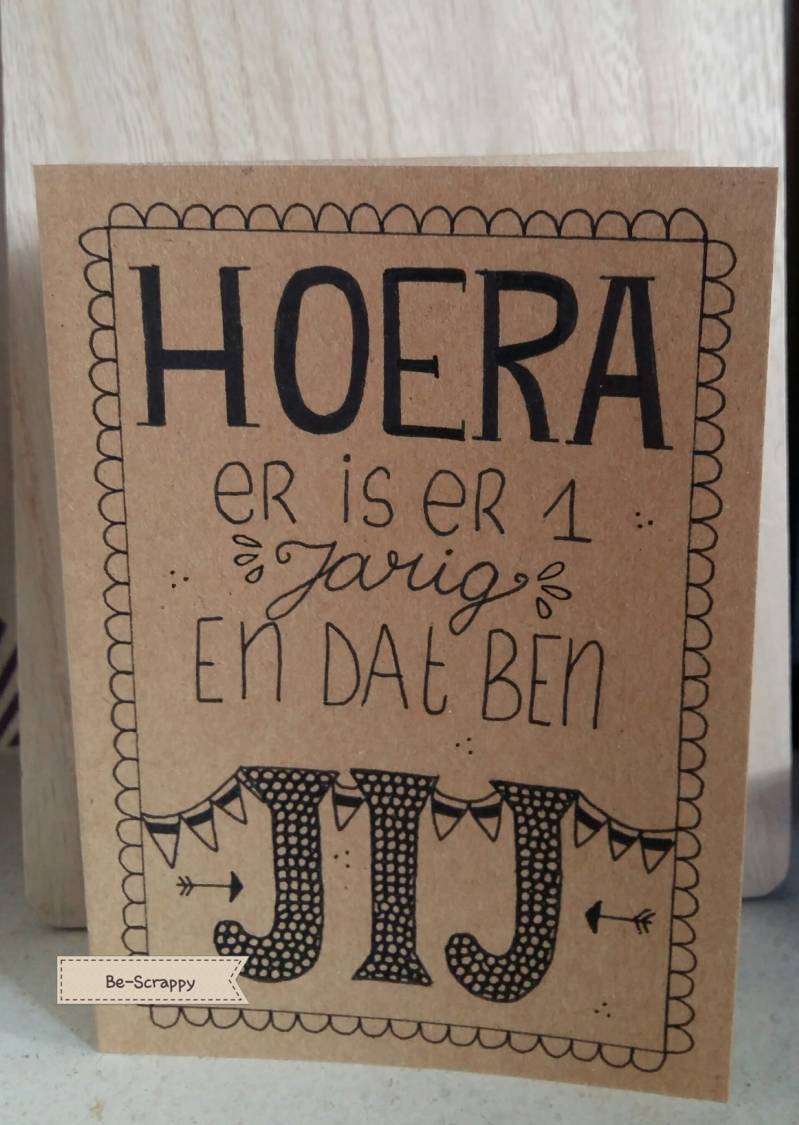 HOERA
er is er 1
Jarig
En DAt BEn
JIJ
Be-Scrappy